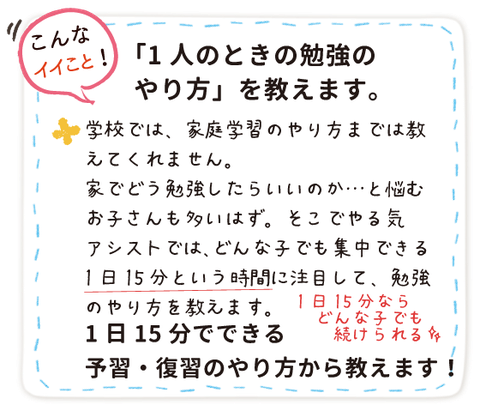 こんな
イイこと！
「1人のときの勉強の
やり方」を教えます。
学校では、家庭学習のやり方までは教
えてくれません。
家でどう勉強したらいいのか…と悩む
お子さんも多いはず。そこでやる気
アシストでは、どんな子でも集中できる
1日15分という時間に注目して、勉強
のやり方を教えます。
1日15分なら
どんな子でも
続けられる
1日15分でできる
予習・復習のやり方から教えます！